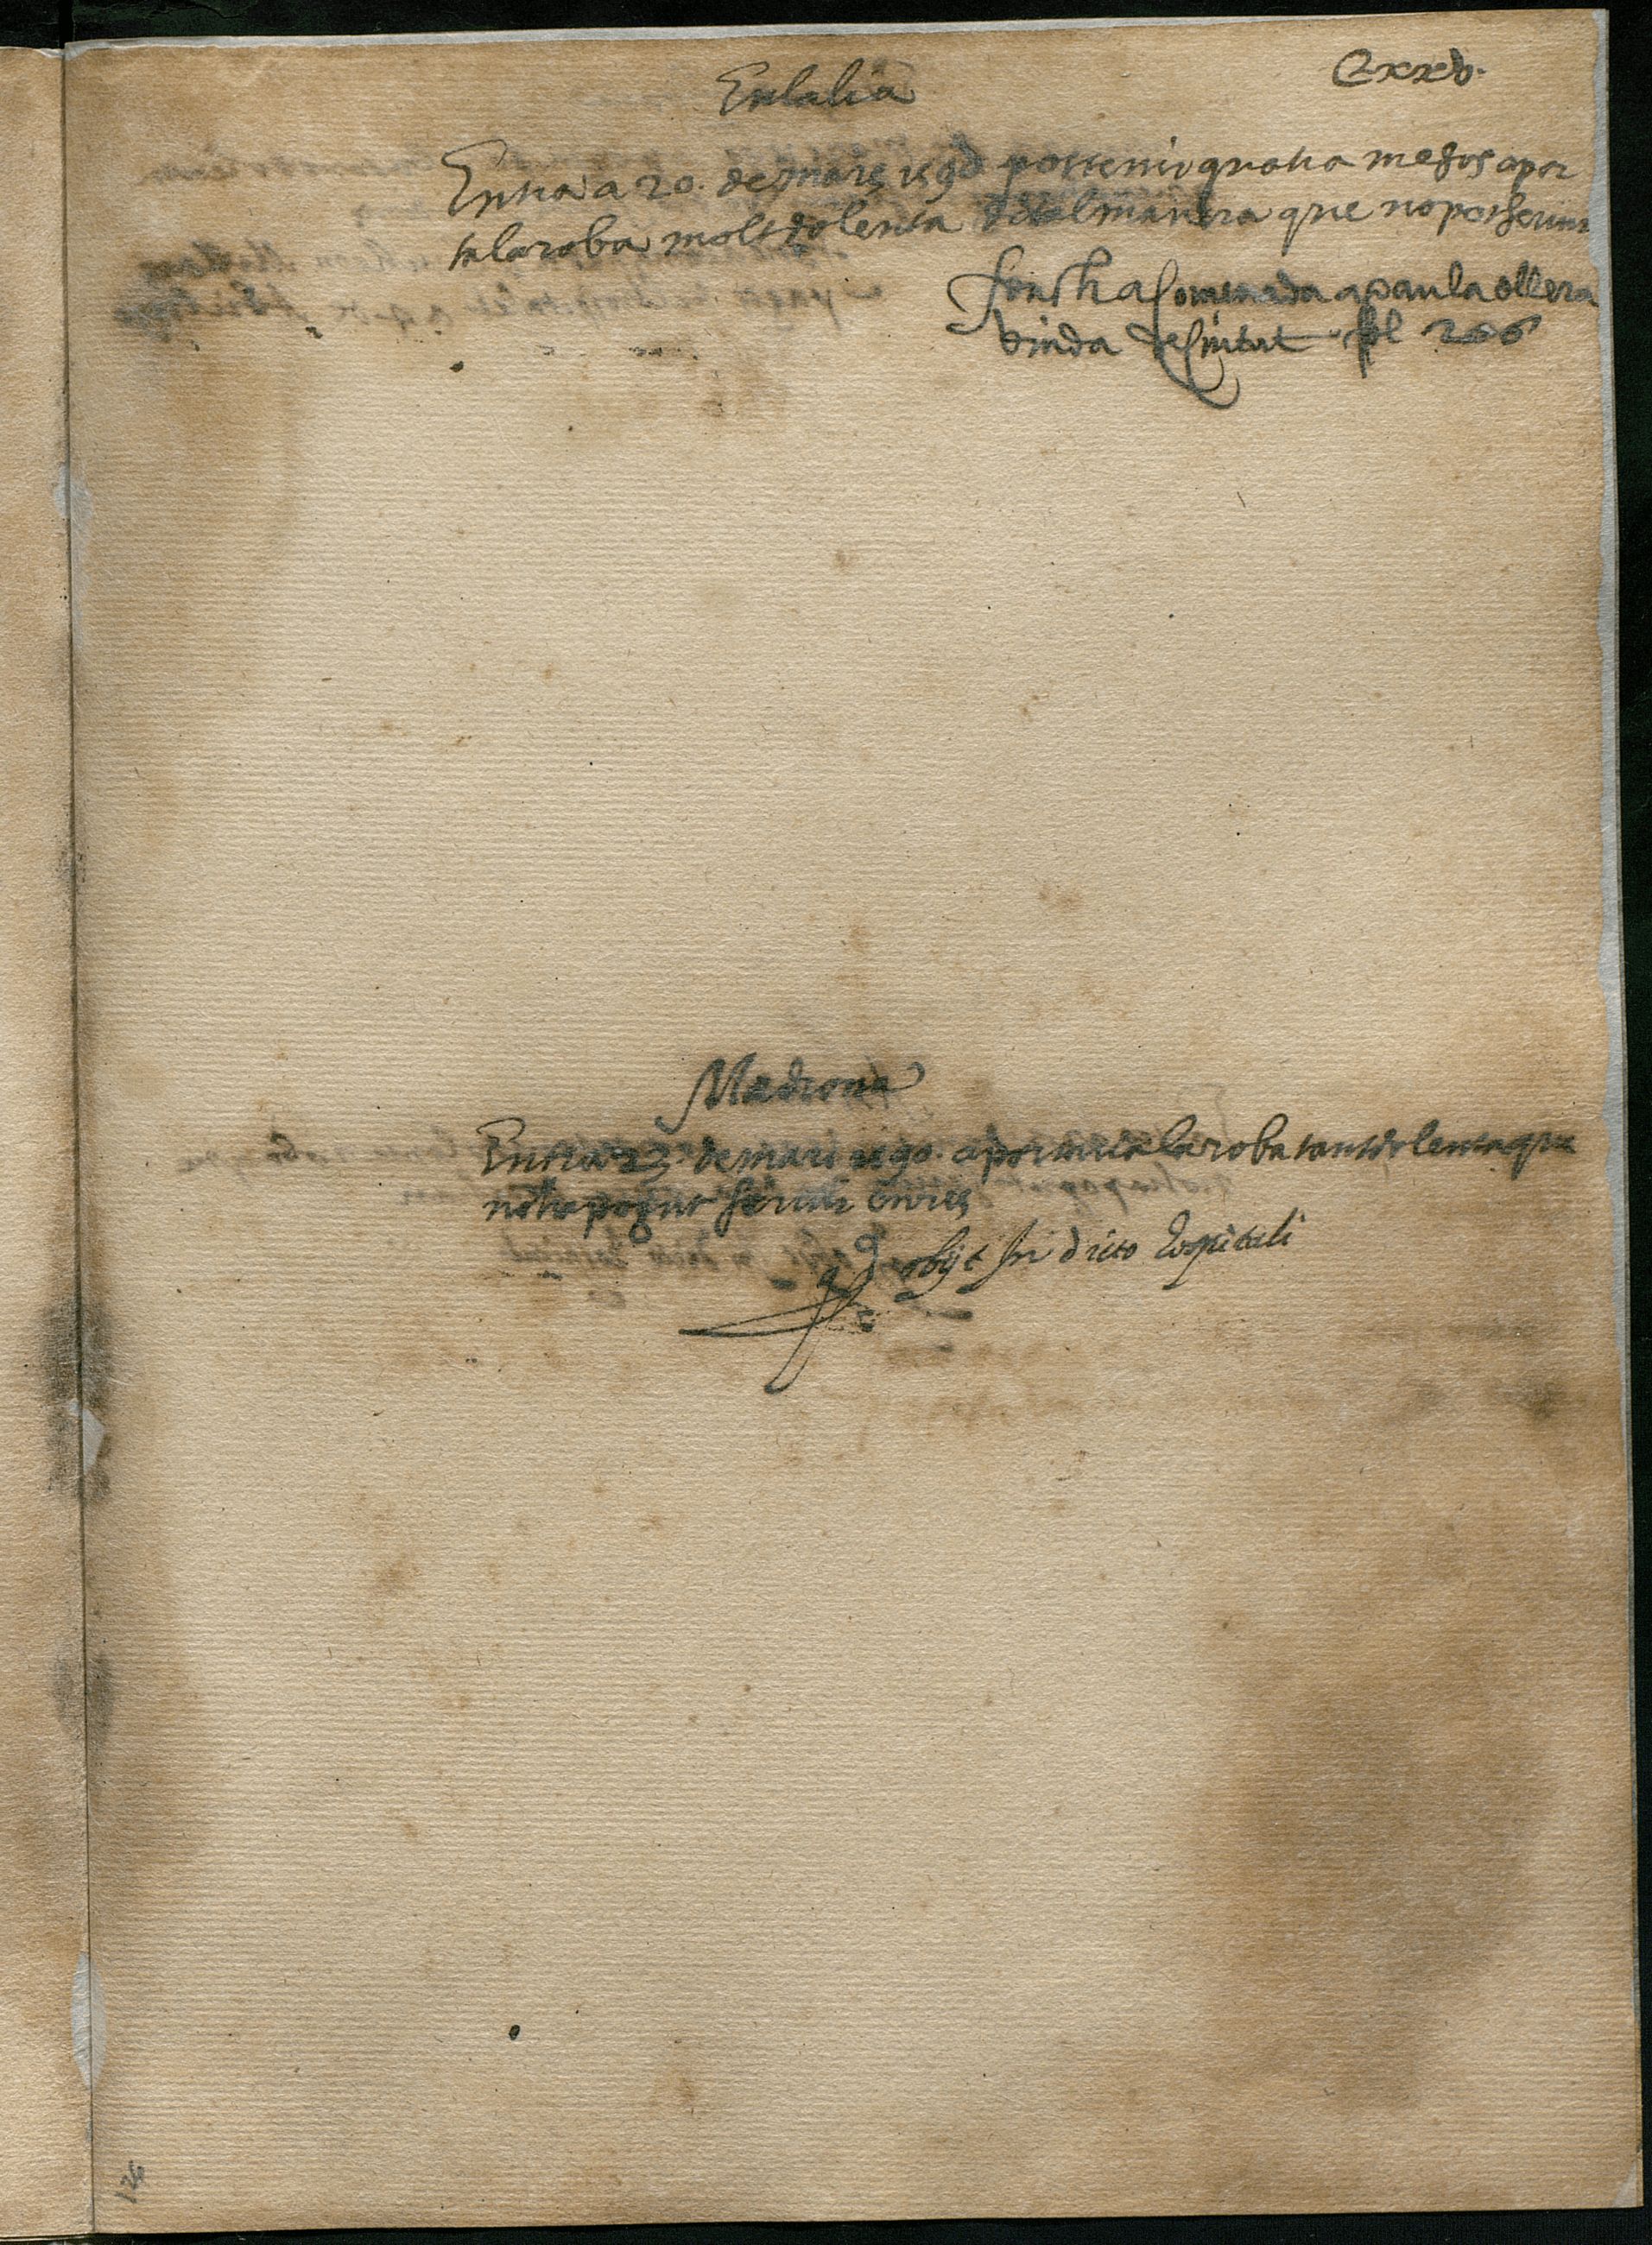 Cxxv.
Eulalia
Entra a 20. de mars 1590 pot tenir quatra mesos apor
ta la roba molt dolenta de tal manera que no pot servir
fonch a Comenada a paula ollera
viuda de Ciutat fol 266
Madrona
Entra a 23 de mars 1590. aporta la roba tant dolenta que
no ha pogut servir en res
obijt In dicto hospitali
125